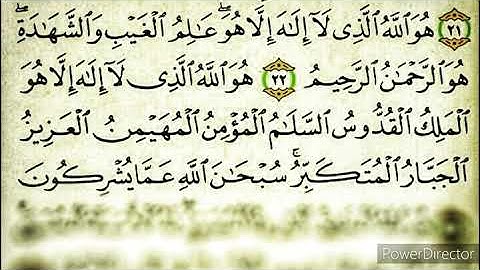 ﴿٢١﴾ هُوَ ٱللَّهُ ٱلَّذِى لَآ إِلَـٰهَ إِلَّا هُوَ ۖ عَـٰلِمُ ٱلْغَيْبِ وَٱلشَّهَـٰدَةِ ۖ
هُوَ ٱلرَّحْمَـٰنُ ٱلرَّحِيمُ ﴿٢٢﴾ هُوَ ٱللَّهُ ٱلَّذِى لَآ إِلَـٰهَ إِلَّا هُوَ
ٱلْمَلِكُ ٱلْقُدُّوسُ ٱلسَّلَـٰمُ ٱلْمُؤْمِنُ ٱلْمُهَيْمِنُ ٱلْعَزِيزُ
ٱلْجَبَّارُ ٱلْمُتَكَبِّرُ ۚ سُبْحَـٰنَ ٱللَّهِ عَمَّا يُشْرِكُونَ
PowerDirector